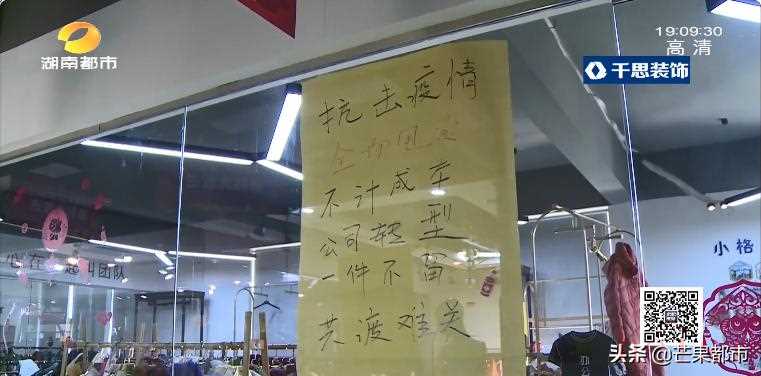 湖南都市
19:09:30
高清
千思装饰
抗击疫情
全场甩卖
不计成本
公司轻型
一件不留
共渡难关
团队
小格
头条@芒果都市